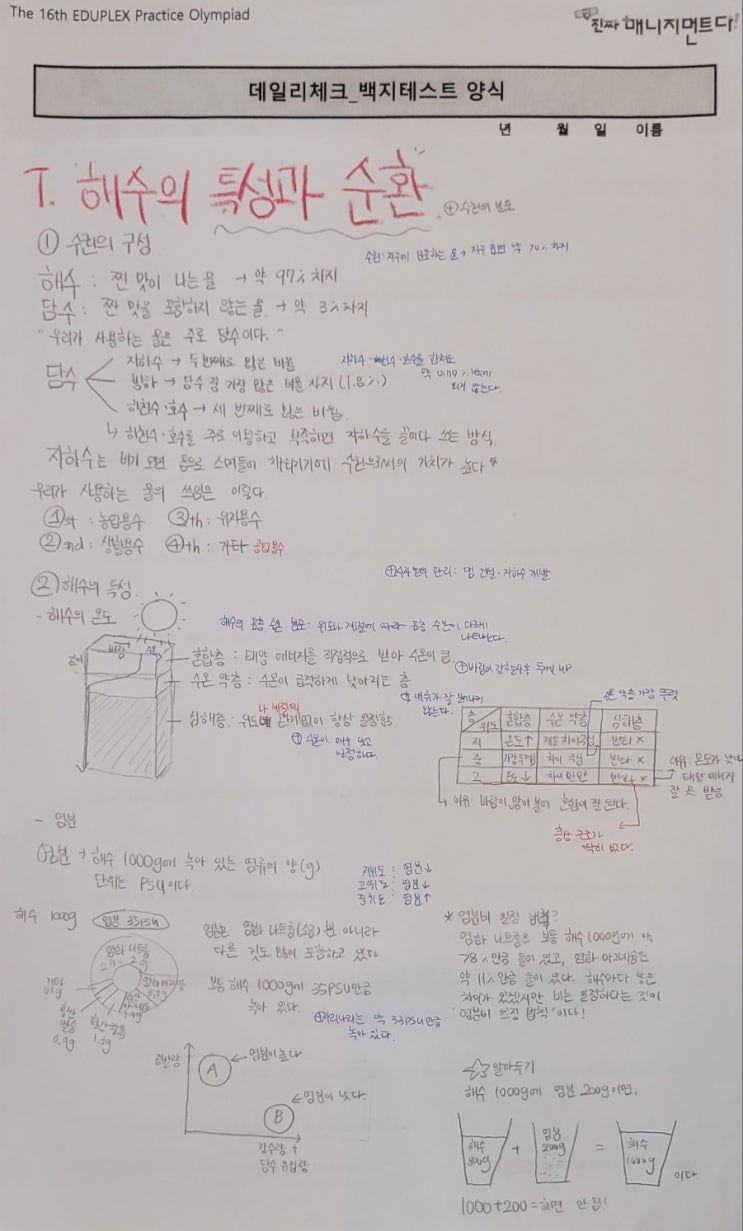 The 16th EDUPLEX Practice Olympiad
진짜 매니지먼트다!
데일리체크_백지테스트 양식
년 월 일 이름
7. 해수의 특성과 순환
⊕ 수권의 분포
① 수권의 구성
수권: 지구에 분포하는 물 → 지구 표면 약 70% 차지
해수 : 짠 맛이 나는 물 → 약 97% 차지
담수 : 짠 맛을 포함하지 않는 물 → 약 3% 차지
"우리가 사용하는 물은 주로 담수이다."
담수
지하수 → 두 번째로 많은 비율
빙하 → 담수 중 가장 많은 비율 차지 (1.8%)
하천수·호수 → 세 번째로 많은 비율
지하수·하천수·호수를 합쳐도
약 0.77% 밖에
되지 않는다.
↳ 하천수·호수를 주로 이용하고 부족하면 지하수를 끌어다 쓰는 방식
지하수는 비가 오면 틈으로 스며들어 채워지기에 수원으로써의 가치가 높다
우리가 사용하는 물의 쓰임은 이렇다.
①st : 농업용수 ③th : 유지용수
②nd : 생활용수 ④th : 기타 공업용수
⊕ 수자원의 관리 : 댐 건설·지하수 개발
② 해수의 특성
- 해수의 온도
해수의 표층 수온 분포 : 위도와 계절에 따라 표층 수온이 다르게
나타난다.
깊이
바람
혼합층 : 태양 에너지를 직접적으로 받아 수온이 큼
⊕ 바람이 강할수록 두께 up
수온 약층 : 수온이 급격하게 낮아지는 층
심해층 : 위도나 계절에 관계 없이 항상 일정함
⊕ 수온이 매우 낮고
일정하다.
⊕ 대류가 잘 일어나지
않는다.
수온 약층 가장 뚜렷
층 위도 혼합층 수온 약층 심해층
저 온도↑ 변화 ×
중 가장 두꺼움 차이 극심 변화 ×
고 온도↓ 차이 완만 변화 ×
이유 : 온도가 낮아
태양 에너지
잘 못 받음
이유 : 바람이 많이 불어 혼합이 잘 된다.
층상 구조가
딱히 없다.
- 염분
염분 → 해수 1000g에 녹아 있는 염류의 양(g)
단위는 PSU이다.
저위도 : 염분↓
고위도 : 염분↓
중위도 : 염분↑
해수 1000g 염분 35PSU
염화 나트륨
27.2g
염화 마그네슘
3.8g
기타
0.1g
황산
칼륨
0.9g
황산칼슘
1.3g
염분은 염화 나트륨(소금) 뿐 아니라
다른 것도 많이 포함하고 있다
보통 해수 1000g에 35PSU만큼
녹아 있다.
⊕ 우리나라는 약 33PSU만큼
녹아 있다.
* 염분비 일정 법칙?
염화 나트륨은 보통 해수 1000g에 약
78%만큼 들어 있고, 염화 마그네슘은
약 11%만큼 들어 있다. 해수마다 많은
차이가 있겠지만 비는 일정하다는 것이
"염분비 일정 법칙"이다!
증발량
A ← 염분이 높다
B ← 염분이 낮다.
강수량 ↑
담수 유입량
☆ 알아두기
해수 1000g에 염분 200g이면,
해수 800g + 염분 200g = 해수 1000g 이다
1000+200=하면 안 됨!